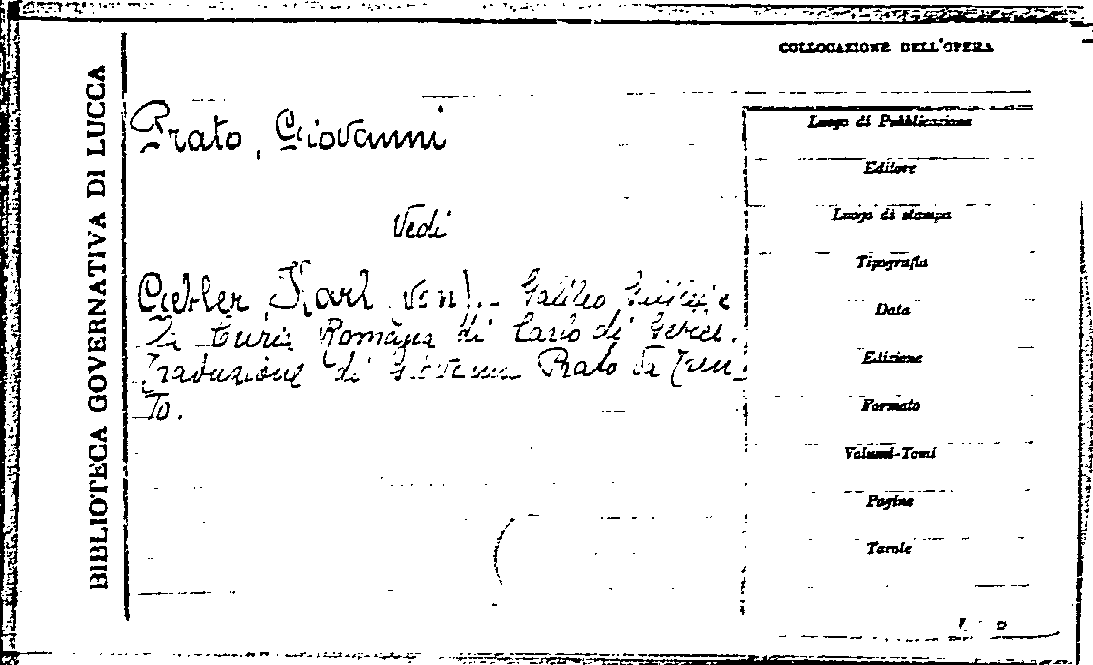 COLLOCAZIONE DELL'OPERA
BIBLIOTECA GOVERNATIVA DI LUCCA
Prato, Giovanni
Vedi
Gebler, Karl von). - Galileo Galilei e
la Curia Romana di Carlo di
Traduzione di Giovanni Prato da Tren-
to.
Luogo di Pubblicazione
Editore
Luogo di stampa
Tipografia
Data
Edizione
Formato
Volumi-Tomi
Pagine
Tavole